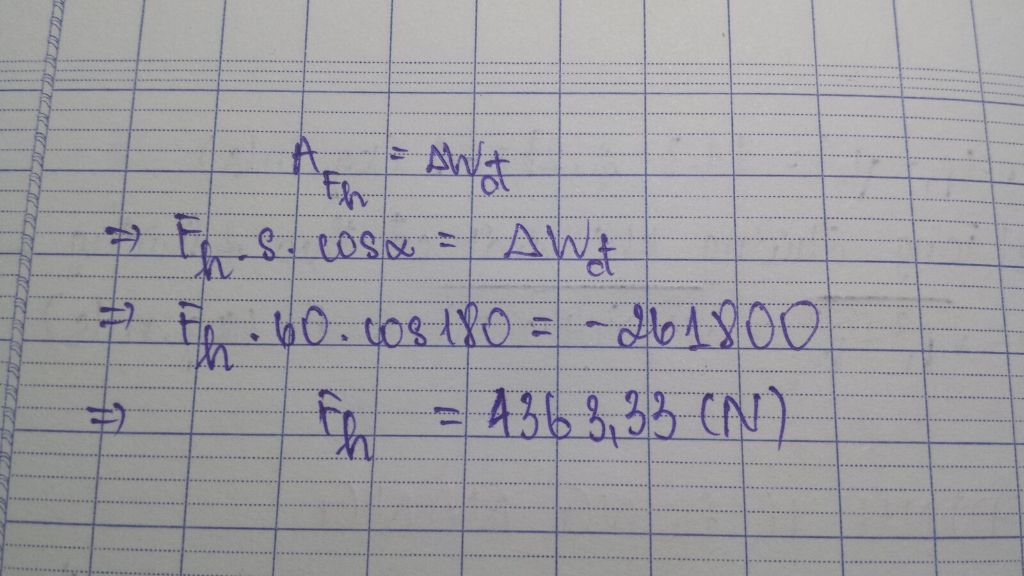 A_Fh = ΔWđ
=> Fh . s . cosα = ΔWđ
=> Fh . 60 . cos180 = -261800
=> Fh = 4363,33 (N)